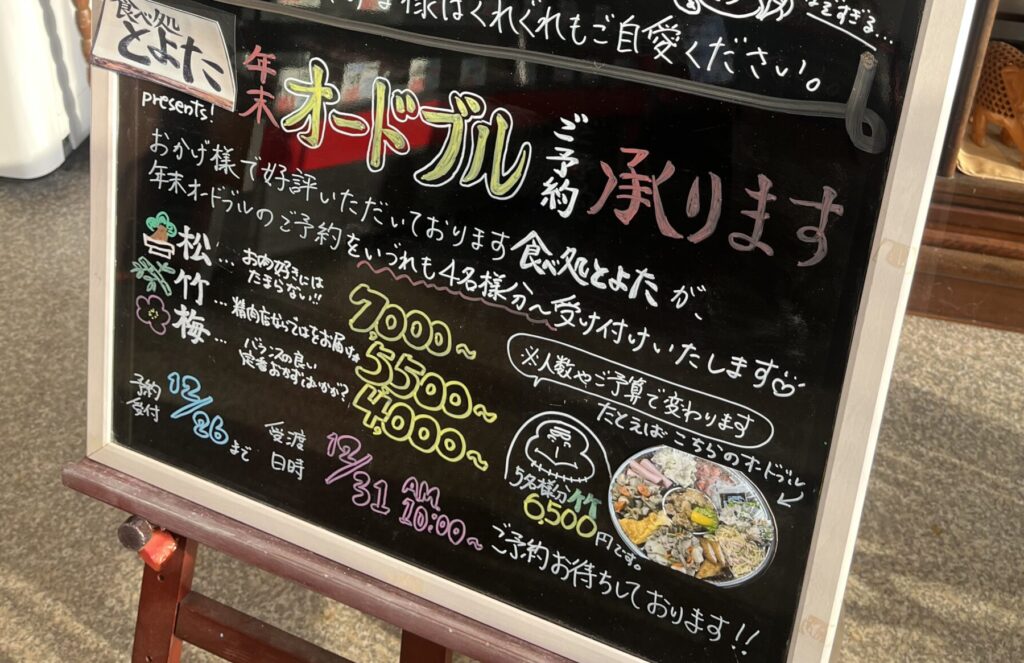 様はくれぐれもご自愛ください。
なますぎる…
食べ処
とよた
presents!
年末
オードブル
ご予約
承ります
おかげ様で好評いただいております食べ処とよたが、
年末オードブルのご予約をいづれも4名様分〜受け付けいたします♡
松…お肉好きには
たまらない!!
7,000〜
竹…精肉店ならではをお届け
5500〜
梅…バランスの良い
定番おかずはいかが?
4,000〜
※人数やご予算で変わります
たとえばこちらのオードブル
5名様分竹
6,500円です。
予約
受付
12/26まで
受渡
日時
12/31
AM
10:00〜
ご予約お待ちしております!!